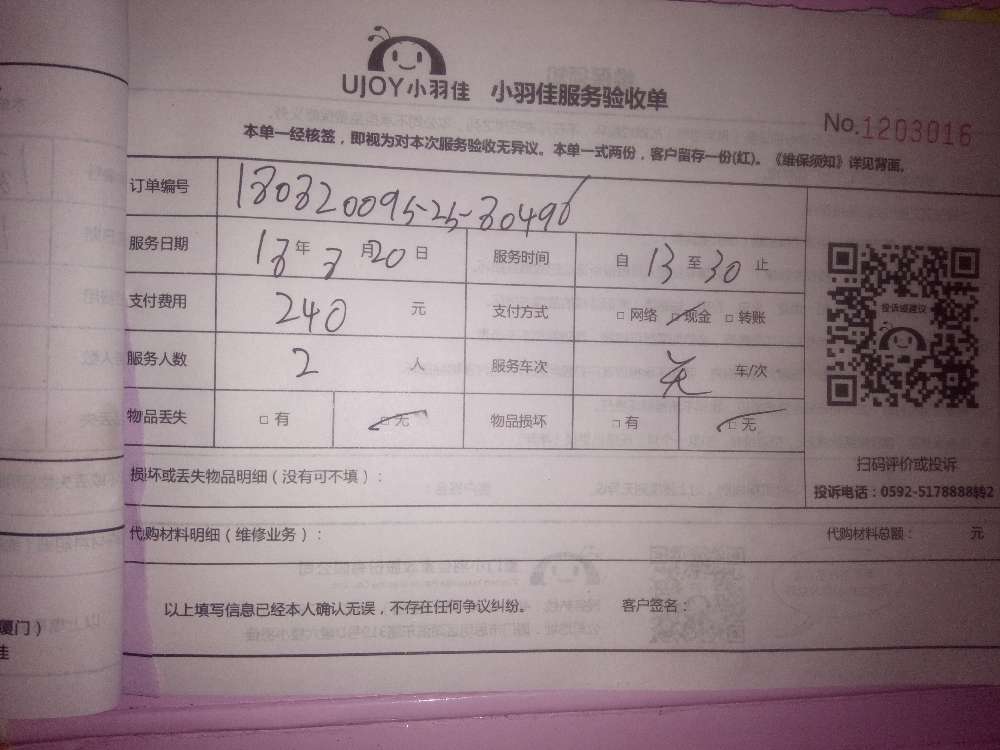 UJOY小羽佳 小羽佳服务验收单
No.1203016
本单一经核签，即视为对本次服务验收无异议。本单一式两份，客户留存一份(红)。《维保须知》详见背面。
订单编号 180320095-25-80496
服务日期 18年3月20日 服务时间 自13至30止
支付费用 240元 支付方式 □网络 □现金 □转账
服务人数 2人 服务车次 无 车/次
物品丢失 □有 □无 物品损坏 □有 □无
投诉或建议
扫码评价或投诉
投诉电话：0592-5178888转2
损坏或丢失物品明细（没有可不填）：
代购材料明细（维修业务）： 代购材料总额： 元
以上填写信息已经本人确认无误，不存在任何争议纠纷。 客户签名：
厦门）
佳